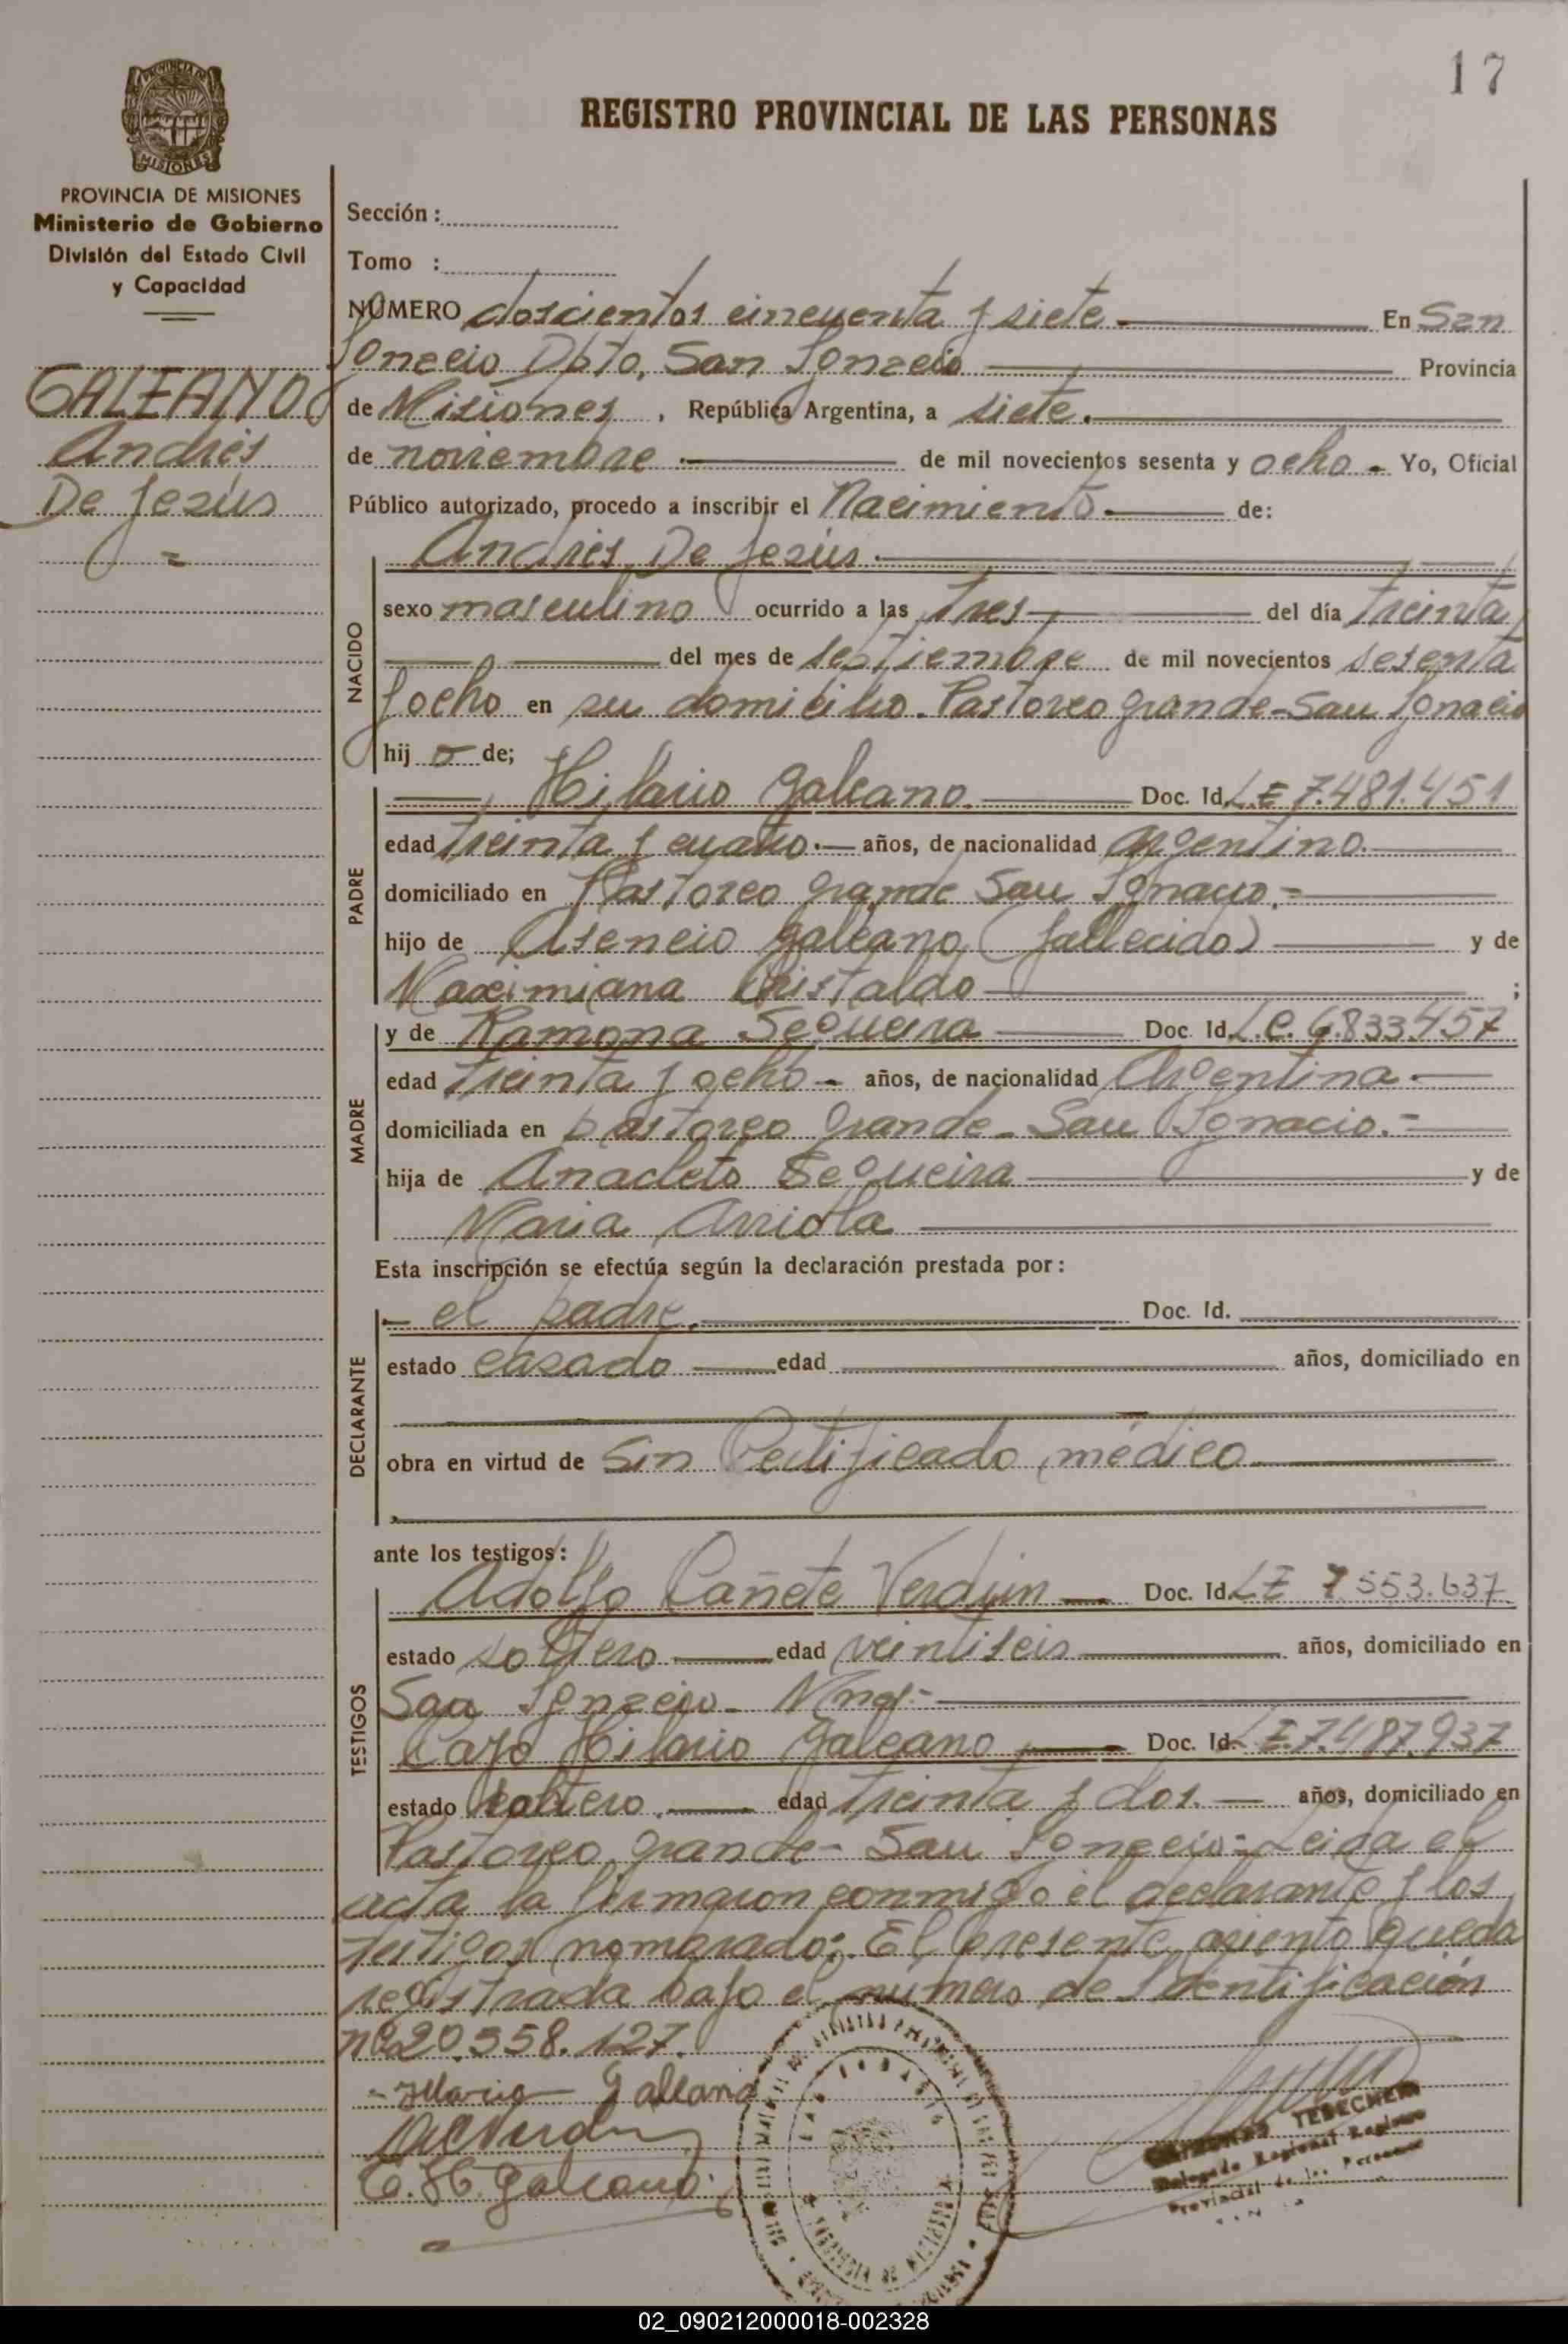 17
REGISTRO PROVINCIAL DE LAS PERSONAS
PROVINCIA DE MISIONES
Ministerio de Gobierno
División del Estado Civil
y Capacidad
GALEANO
Andrés
De Jesús
Sección :
Tomo :
NÚMERO doscientos cincuenta y siete. En San
Ignacio Dpto, San Ignacio Provincia
de Misiones, República Argentina, a siete.
de noviembre de mil novecientos sesenta y ocho - Yo, Oficial
Público autorizado, procedo a inscribir el Nacimiento de:
Andrés De Jesús.
NACIDO
sexo masculino ocurrido a las tres del día treinta
del mes de septiembre de mil novecientos sesenta
y ocho en su domicilio. Pastoreo grande - San Ignacio
hij o de;
PADRE
Hilario Galeano. Doc. Id. L.E 7.481.451
edad treinta y cuatro.- años, de nacionalidad argentino.
domiciliado en Pastoreo grande San Ignacio.-
hijo de Asencio galeano (fallecido) y de
Maximiana Cristaldo ;
MADRE
y de Ramona Sequeira Doc. Id. L.C. 6.833.457
edad treinta y ocho - años, de nacionalidad Argentina.
domiciliada en pastoreo grande - San Ignacio.-
hija de Anacleto Sequeira y de
Maria Arriola
Esta inscripción se efectúa según la declaración prestada por:
DECLARANTE
- el padre. Doc. Id.
estado casado edad años, domiciliado en
obra en virtud de Sin Certificado médico
ante los testigos:
TESTIGOS
Adolfo Cañete Verdun Doc. Id. LE 7 553.637
estado soltero edad veintiseis años, domiciliado en
San Ignacio - Mnes.-
Cayo Hilario Galeano Doc. Id. L.E. 7.487.937
estado soltero. edad treinta y dos. años, domiciliado en
Pastoreo grande - San Ignacio - Leida el
acta la firmaron conmigo el declarante y los
testigos nombrado: El presente asiento queda
registrada bajo el numero de Identificación
nº 20.558.127.
Galeano
C. H. Galeano
TEBECHERI
Delegado Regional Registro
Provincial de las Personas
02_090212000018-002328